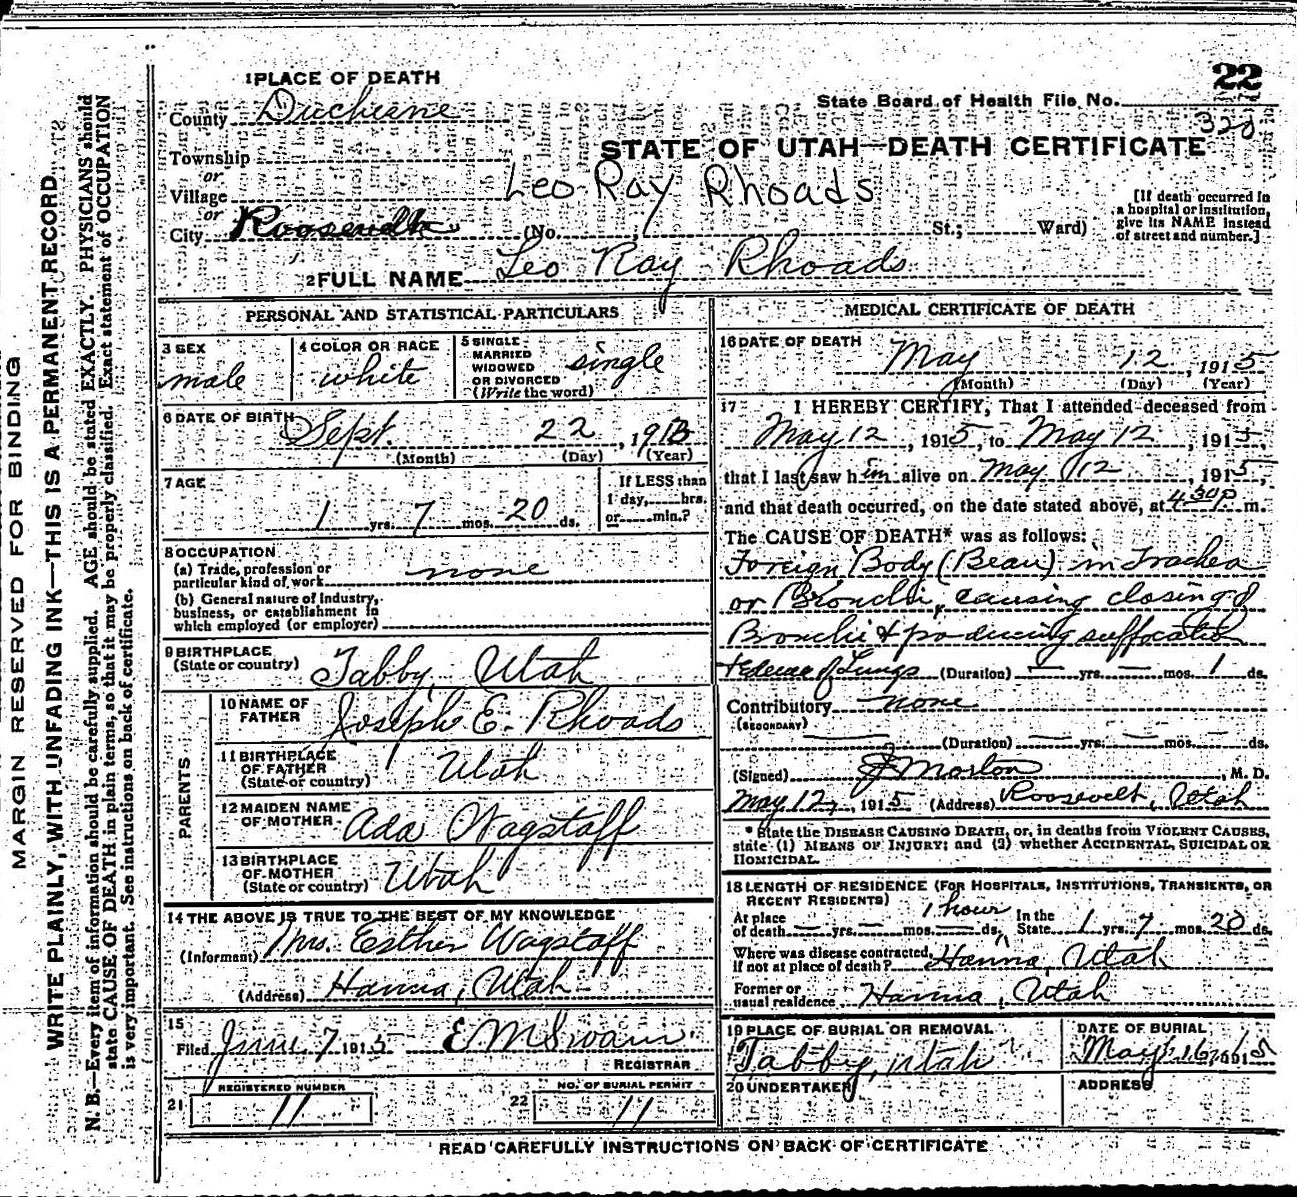 22
1 PLACE OF DEATH
State Board of Health File No. 320
County Duchesne
STATE OF UTAH—DEATH CERTIFICATE
Township
or
Village
Leo Ray Rhoads
or
City Roosevelt (No. St.; Ward)
[If death occurred in a hospital or institution, give its NAME instead of street and number.]
2 FULL NAME Leo Ray Rhoads
PERSONAL AND STATISTICAL PARTICULARS
3 SEX male
4 COLOR OR RACE white
5 SINGLE MARRIED WIDOWED OR DIVORCED (Write the word) single
6 DATE OF BIRTH Sept. 22, 1913
(Month) (Day) (Year)
7 AGE 1 yrs. 7 mos. 20 ds.
If LESS than 1 day, hrs. or min.?
8 OCCUPATION
(a) Trade, profession or particular kind of work none
(b) General nature of Industry, business, or establishment in which employed (or employer)
9 BIRTHPLACE (State or country) Tabby, Utah
PARENTS
10 NAME OF FATHER Joseph E. Rhoads
11 BIRTHPLACE OF FATHER (State or country) Utah
12 MAIDEN NAME OF MOTHER Ada Wagstaff
13 BIRTHPLACE OF MOTHER (State or country) Utah
14 THE ABOVE IS TRUE TO THE BEST OF MY KNOWLEDGE
(Informant) Mrs. Esther Wagstaff
(Address) Hanna, Utah
15 Filed June 7 1915 E M Swain
REGISTRAR
REGISTERED NUMBER
21 11
NO. OF BURIAL PERMIT
22 11
MEDICAL CERTIFICATE OF DEATH
16 DATE OF DEATH May 12, 1915
(Month) (Day) (Year)
17 I HEREBY CERTIFY, That I attended deceased from
May 12, 1915, to May 12, 1915,
that I last saw him alive on May 12, 1915,
and that death occurred, on the date stated above, at 4:30 P m.
The CAUSE OF DEATH* was as follows:
Foreign Body (Bean) in Trachea
or Bronchi, causing closing of
Bronchi & producing suffocation
+ edema of Lungs (Duration) — yrs. — mos. 1 ds.
Contributory none
(SECONDARY)
(Duration) — yrs. — mos. — ds.
(Signed) J Morton, M. D.
May 12, 1915 (Address) Roosevelt, Utah
* State the DISEASE CAUSING DEATH, or, in deaths from VIOLENT CAUSES,
state (1) MEANS OF INJURY; and (2) whether ACCIDENTAL, SUICIDAL OR
HOMICIDAL.
18 LENGTH OF RESIDENCE (FOR HOSPITALS, INSTITUTIONS, TRANSIENTS, OR
RECENT RESIDENTS)
At place of death — yrs. — mos. — ds. 1 hour In the State 1 yrs. 7 mos. 20 ds.
Where was disease contracted, if not at place of death? Hanna, Utah
Former or usual residence Hanna, Utah
19 PLACE OF BURIAL OR REMOVAL Tabby, Utah
DATE OF BURIAL May 1915
20 UNDERTAKER
ADDRESS
READ CAREFULLY INSTRUCTIONS ON BACK OF CERTIFICATE
MARGIN RESERVED FOR BINDING
WRITE PLAINLY, WITH UNFADING INK—THIS IS A PERMANENT RECORD
N. B.—Every item of information should be carefully supplied. AGE should be stated EXACTLY. PHYSICIANS should
state CAUSE OF DEATH in plain terms, so that it may be properly classified. Exact statement of OCCUPATION
is very important. See instructions on back of certificate.